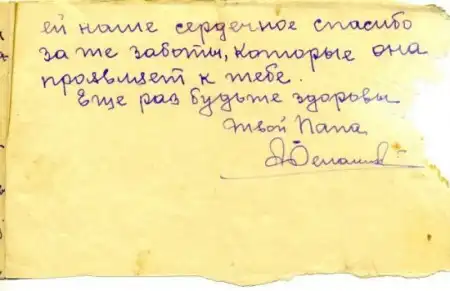 ей наше сердечное спасибо
за те заботы, которые она
проявляет к тебе.
Еще раз будьте здоровы
твой папа